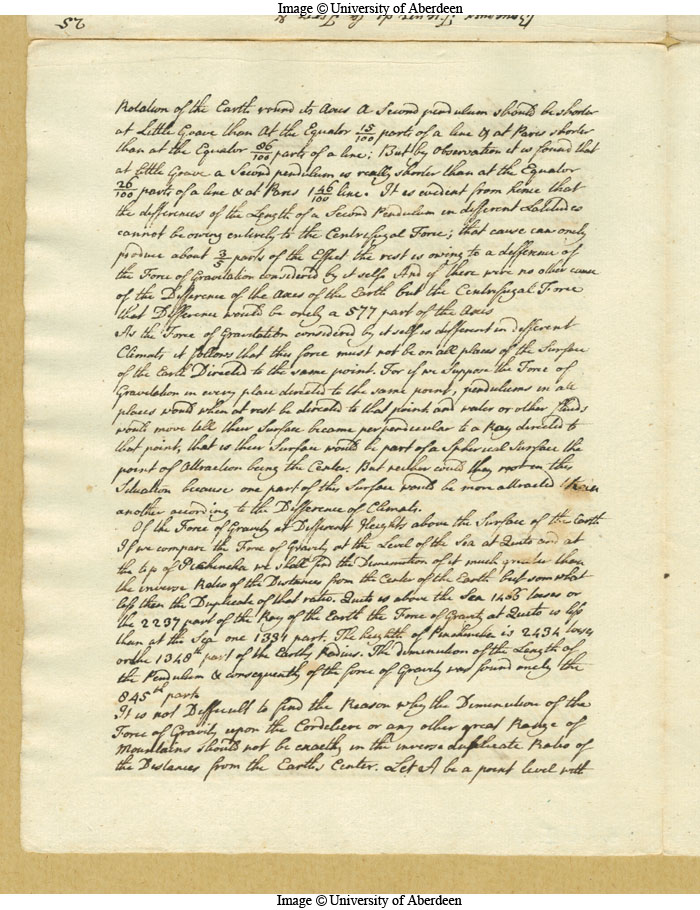 Image © University of Aberdeen
25
Rotation of the Earth round its Axis A Second pendulum should be shorter
at Little Goave than At the Equator 15/100 parts of a line & at Paris shorter
than at the Equator 86/100 parts of a line; But by Observation it is found that
at Little Goave a Second pendulum is really shorter than at the Equator
26/100 parts of a line & at Paris 1 46/100 line. It is evident from hence that
the differences of the Length of a Second Pendulum in different Latitudes
cannot be owing entirely to the Centrifugal Force; that cause can onely
produce about 3/5 parts of the Effect the rest is owing to a difference of
the Force of Gravitation considered by it self. And if there were no other cause
of the Difference of the Axes of the Earth but the Centrifugal Force
that Difference would be onely a 577 part of the Axis
As the Force of Gravitation considered by it self is different in different
Climats it follows that this force must not be on all places of the Surface
of the Earth Directed to the same point. For if we Suppose the Force of
Gravitation in every place directed to the same point, pendulums in all
places would when at rest be directed to that point and water or other fluids
would move till their Surface became perpendicular to a Ray directed to
that point, that is their Surface would be part of a Spherical Surface the
point of Attraction being the Center. But neither could they rest in this
Situation because one part of this Surface would be more attracted than
another according to the Difference of Climats.
Of the Force of Gravity at Different Heights above the Surface of the Earth
If we compare the Force of Gravity at the Level of the Sea at Quito and at
the top of Pichincha we shall find the Diminution of it much greater than
the inverse Ratio of the Distances from the Center of the Earth but somwhat
less then the Duplicate of that ratio. Quito is above the Sea 1466 toises or
the 2237 part of the Ray of the Earth the Force of Gravity at Quito is less
than at the Sea one 1331 part. The heighth of Pichincha is 2434 toises
or the 1348th part of the Earths Radius. The diminution of the Length of
the Pendulum & consequently of the force of Gravity was found onely the
845th part.
It is not Difficult to find the Reason why the Diminution of the
Force of Gravity upon the Cordeliere or any other great Range of
Mountains should not be exactly in the inverse duplicate Ratio of
the Distances from the Earth's Center. Let A be a point level with
Image © University of Aberdeen